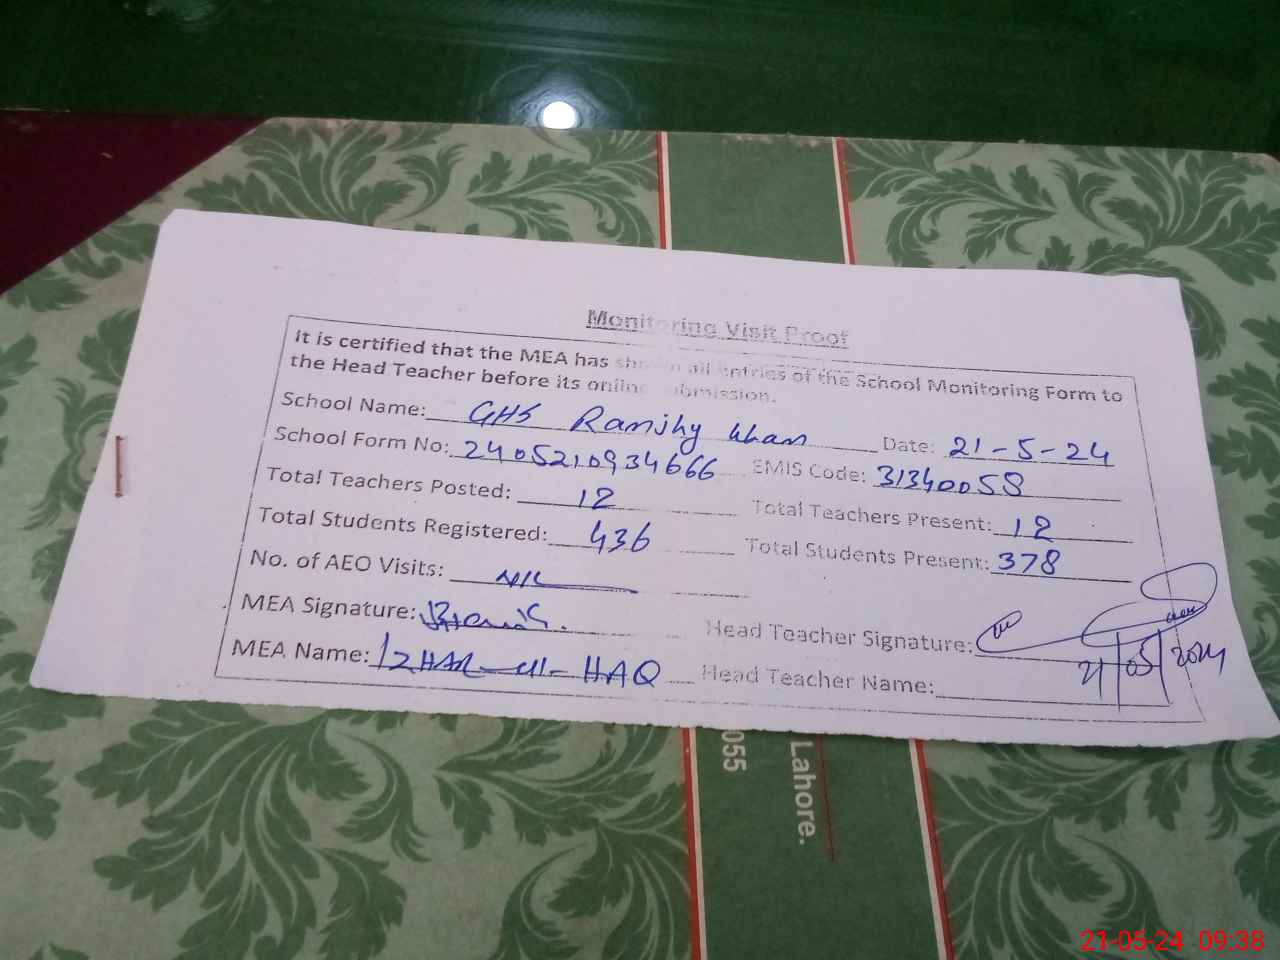 Monitoring Visit Proof
It is certified that the MEA has shown all entries of the School Monitoring Form to
the Head Teacher before its online submission.
School Name: GHS Ramjhy Khan Date: 21-5-24
School Form No: 2405210934666 EMIS Code: 31340058
Total Teachers Posted: 12 Total Teachers Present: 12
Total Students Registered: 436 Total Students Present: 378
No. of AEO Visits: NIL
MEA Signature: Head Teacher Signature:
MEA Name: IZHAR-ul-HAQ Head Teacher Name:
21/05/2024
055
Lahore.
21-05-24 09:38